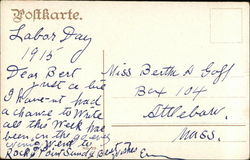 Postkarte.
Labor Day
1915
Dear Bert
Just a line
I havent had
a chance to write
all this week had
been on the go every
Went to
Rocky Point Sunday
Miss Bertha D Goff
Box 104
Attleboro
Mass.